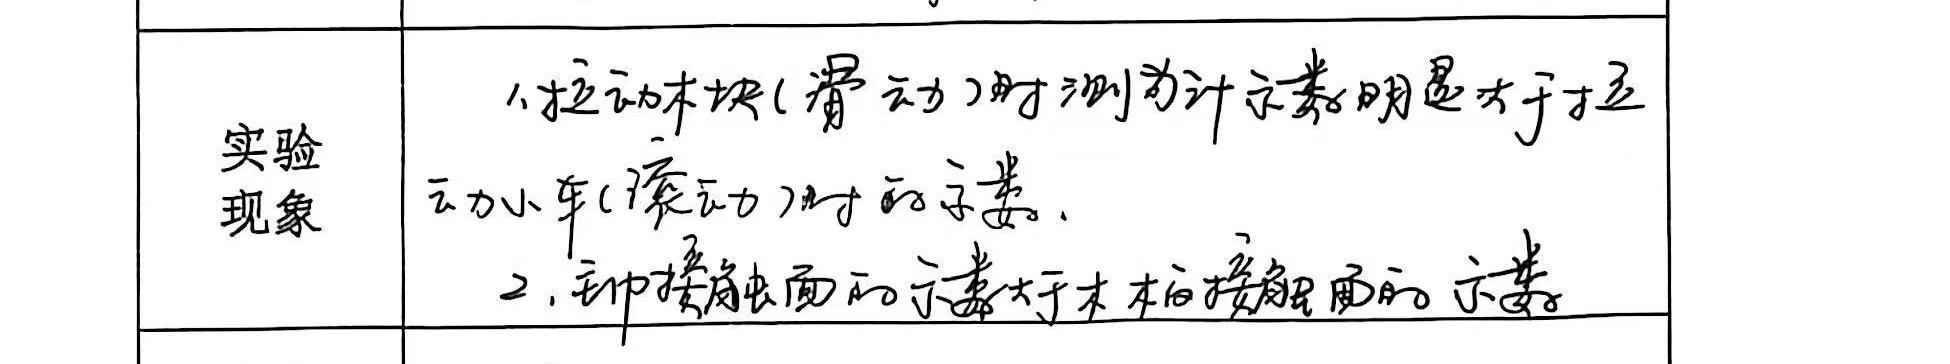 实验
现象
1、拉动木块(滑动)时测力计示数明显大于拉
动小车(滚动)时的示数.
2.毛巾接触面的示数大于木板接触面的示数